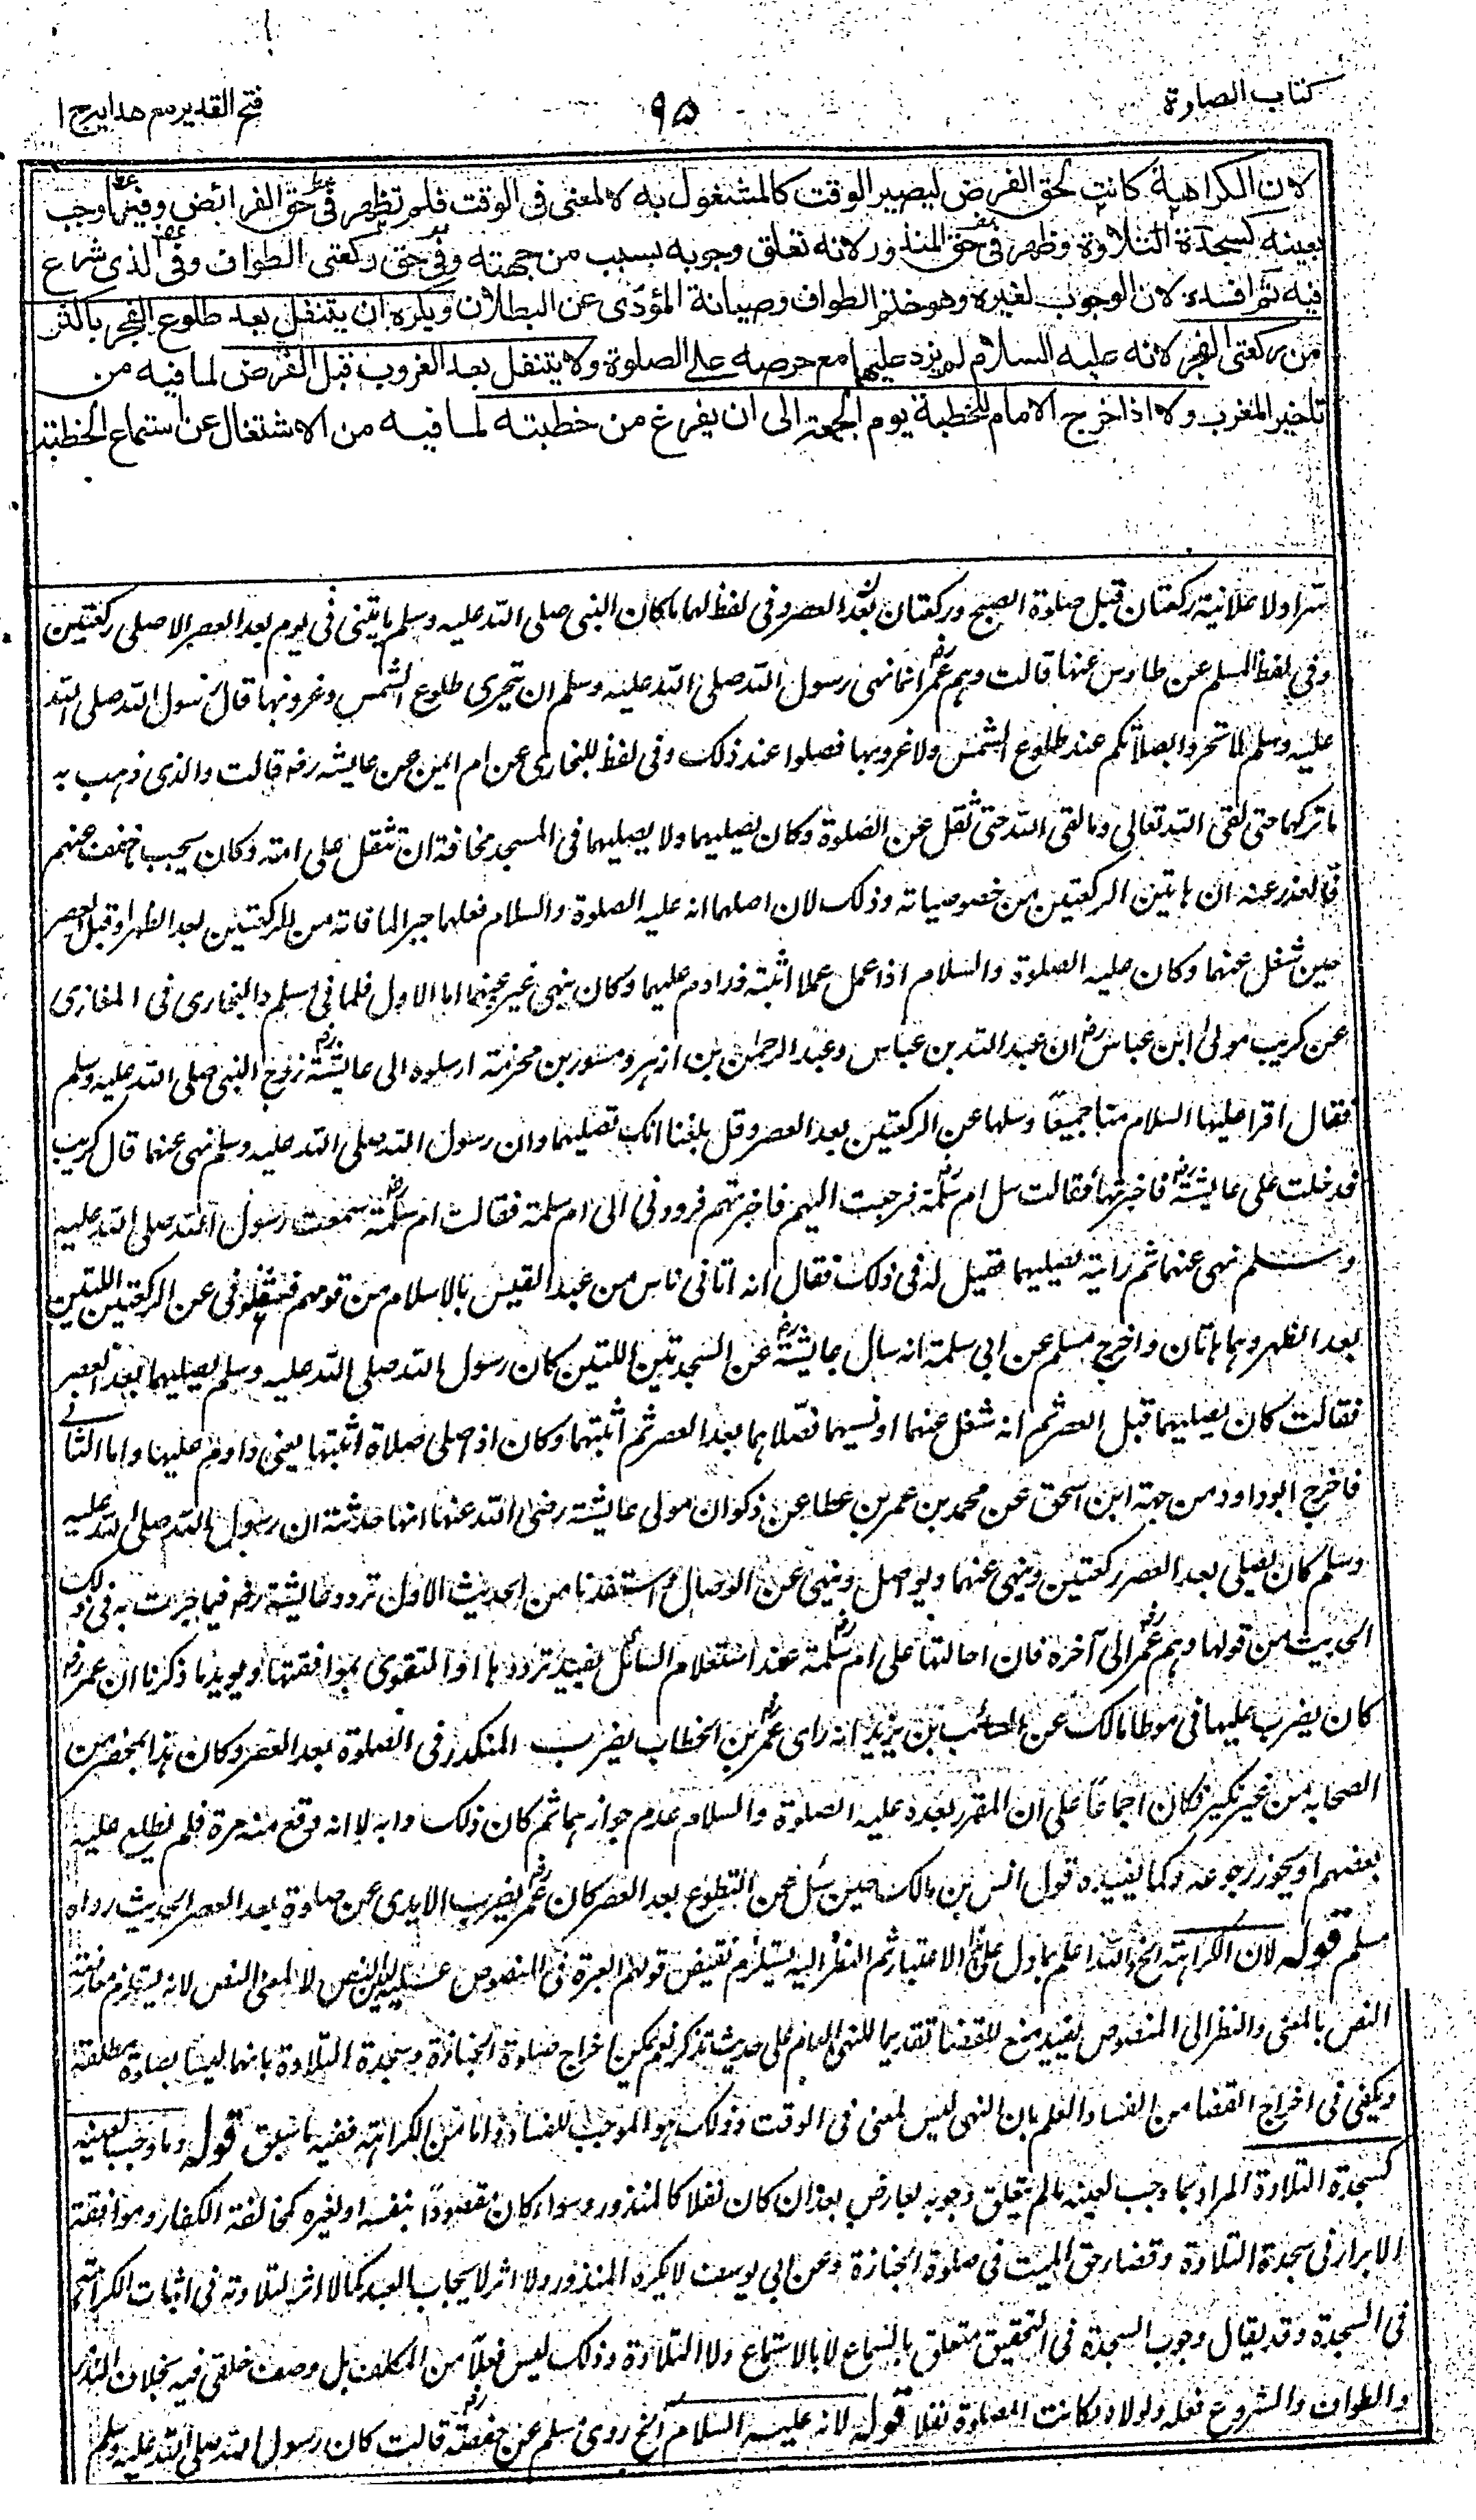 كتاب الصلوة
٩٥
فتح القدير مع هدايه ج ١
لان الكراهية كانت لحق الفرض ليصير الوقت كالمشغول به لا لمعنى فى الوقت فلم تظهر فى حق الفرائض وفيما وجب
بعينه كسجدة التلاوة وظهر فى حق المنذور لانه تعلق وجوبه بسبب من جهته وفى حق ركعتى الطواف وفى الذى شرع
فيه ثم افسده لان الوجوب لغيره وهو ختم الطواف وصيانة المؤدى عن البطلان ويكره ان يتنفل بعد طلوع الفجر باكثر
من ركعتى الفجر لانه عليه السلام لم يزد عليهما مع حرصه على الصلوة ولا يتنفل بعد الغروب قبل الفرض لما فيه من
تاخير المغرب ولا اذا خرج الامام للخطبة يوم الجمعة الى ان يفرغ من خطبته لما فيه من الاشتغال عن استماع الخطبة
سرا ولا علانية ركعتان قبل صلوة الصبح وركعتان بعد العصر وفى لفظ لهما ما كان النبى صلى الله عليه وسلم ياتينى فى يوم بعد العصر الا صلى ركعتين
وفى لفظ لمسلم عن طاوس عنها قالت وهم عمر انما نهى رسول الله صلى الله عليه وسلم ان يتحرى طلوع الشمس وغروبها قال رسول الله صلى الله
عليه وسلم لا تتحروا بصلاتكم عند طلوع الشمس ولا غروبها فصلوا عند ذلك وفى لفظ للبخارى عن ام ايمن عن عايشه رض قالت والذى ذهب به
ما تركهما حتى لقى الله تعالى وما لقى الله حتى ثقل عن الصلوة وكان يصليهما ولا يصليهما فى المسجد مخافة ان تثقل على امته وكان يحب ما خفف عنهم
فالعذر عنه ان هاتين الركعتين من خصوصياته وذلك لان اصلهما انه عليه الصلوة والسلام فعلهما جبرا لما فاته من الركعتين بعد الظهر او قبل العصر
حين شغل عنهما وكان عليه الصلوة والسلام اذا عمل عملا اثبته فداوم عليهما وكان ينهى غيره عنهما اما الاول فلما فى مسلم والبخارى فى المغازى
عن كريب مولى ابن عباس رض ان عبد الله بن عباس وعبد الرحمن بن ازهر ومسور بن مخرمة ارسلوه الى عايشة رض زوج النبى صلى الله عليه وسلم
فقال اقرا عليها السلام منا جميعا وسلها عن الركعتين بعد العصر وقل بلغنا انك تصليهما وان رسول الله صلى الله عليه وسلم نهى عنهما قال كريب
فدخلت على عايشة رض فاخبرتها فقالت سل ام سلمة فرجعت اليهم فاخبرتهم فردونى الى ام سلمة فقالت ام سلمة رض سمعت رسول الله صلى الله عليه
وسلم نهى عنهما ثم رايته يصليهما فقيل له فى ذلك فقال انه اتانى ناس من عبد القيس بالاسلام من قومهم فشغلونى عن الركعتين اللتين
بعد الظهر وهما هاتان واخرج مسلم عن ابى سلمة انه سال عايشة رض عن السجدتين اللتين كان رسول الله صلى الله عليه وسلم يصليهما بعد العصر
فقالت كان يصليهما قبل العصر ثم انه شغل عنهما او نسيهما فصلاهما بعد العصر ثم اثبتهما وكان اذا صلى صلاة اثبتها يعنى داوم عليها واما الثانى
فاخرج ابو داود من جهة ابن اسحق عن محمد بن عمر بن عطا عن ذكوان مولى عايشة رضى الله عنها انها حدثته ان رسول الله صلى الله عليه
وسلم كان يصلى بعد العصر ركعتين وينهى عنهما ويواصل وينهى عن الوصال واستفدنا من الحديث الاول تردد عايشة رض فيما جزمت به فى ذلك
الحديث من قولها وهم عمر الى آخره فان احالتها على ام سلمة رض عند استعلام السائل يفيد ترددها او التقوى بموافقتها ويويد ما ذكرنا ان عمر رض
كان يضرب عليها فى موطا مالك عن السائب بن يزيد انه راى عمر بن الخطاب يضرب المنكدر فى الصلوة بعد العصر وكان هذا بمحضر من
الصحابه من غير نكير فكان اجماعا على ان المقرر بعده عليه الصلوة والسلام عدم جوازهما ثم كان ذلك دابه لا انه وقع منه مرة فلم يطلع عليه
بعضهم او يجوز رجوعه وكما يفيده قول انس بن مالك حين سئل عن التطوع بعد العصر كان عمر يضرب الايدى عن صلوة بعد العصر الحديث رواه
مسلم قوله لان الكراهة الخ والله اعلم بما دل على الاعتبار ثم النظر اليه يستلزم نقيض قولهم العبرة فى المنصوص عليه لعين النص لا لمعنى النص لانه يستلزم معارضة
النص بالمعنى والنظر الى المنصوص يفيد منع القضا تقديما للنهى العام على حديث تذكر نعم يمكن اخراج صلوة الجنازة وسجدة التلاوة بانهما ليسا بصلوة مطلقة
ويكفى فى اخراج القضا من الفساد العلم بان النهى ليس لمعنى فى الوقت وذلك هو الموجب للفساد واما من الكراهة ففيه ما سبق قوله وما وجب لعينه
كسجدة التلاوة المراد بما وجب لعينه ما لم يتعلق وجوبه بعارض بعد ان كان نفلا كالمنذور وسواء كان مقصودا بنفسه او لغيره كمخالفة الكفار وموافقة
الابرار فى سجدة التلاوة وقضاء حق الميت فى صلوة الجنازة وعن ابى يوسف لا يكره المنذور ولا اثر لايجاب العبد كما لا اثر لتلاوته فى اثبات الكراهة
فى السجدة وقد يقال وجوب السجدة فى التحقيق متعلق بالسماع لا بالاستماع ولا التلاوة وذلك ليس فعلا من المكلف بل وصف خلقى فيه بخلاف النذر
والطواف والشروع فعله ولولاه لكانت الصلوة نفلا قوله لانه عليه السلام الخ روى مسلم عن حفصة رض قالت كان رسول الله صلى الله عليه وسلم